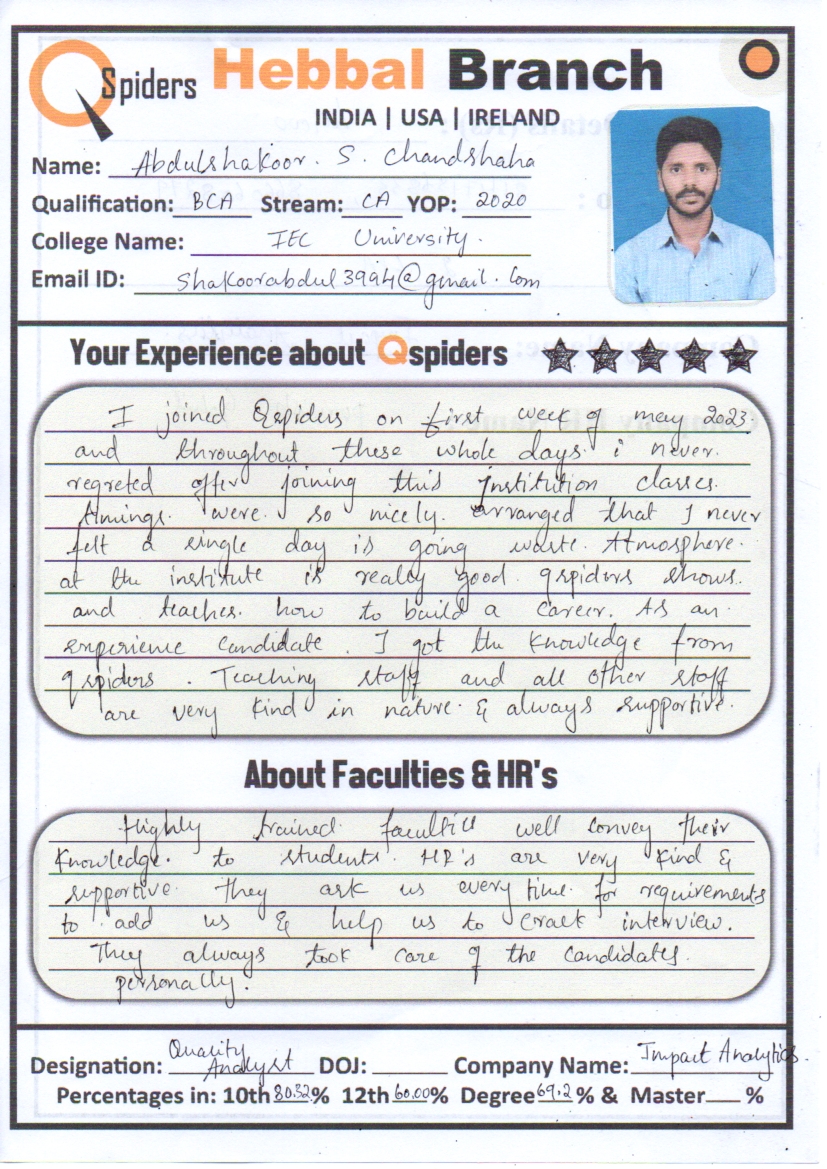 Qspiders Hebbal Branch
INDIA | USA | IRELAND
Name: Abdulshakoor. S. Chandshaha
Qualification: BCA Stream: CA YOP: 2020
College Name: IEC University.
Email ID: shakoorabdul3994@gmail.com
Your Experience about Qspiders
I joined Qspiders on first week of may 2023
and throughout these whole days i never.
regreted after joining this Institution classes.
timings. were. so nicely. arranged that I never
felt a single day is going waste. Atmosphere.
at the institute is really good. qspiders shows.
and teaches. how to build a career. As an
experience candidate. I got the knowledge from
qspiders. Teaching staff and all other staff
are very kind in nature. & always supportive.
About Faculties & HR's
Highly trained faculties well convey their
knowledge. to students. HR's are very kind &
supportive. They ask us every time. for requirements
to add us & help us to crack interview.
They always took care of the candidates.
personally.
Designation: Quality Analyst DOJ: Company Name: Impact Analytics.
Percentages in: 10th 80.32% 12th 60.00% Degree 69.2% & Master %